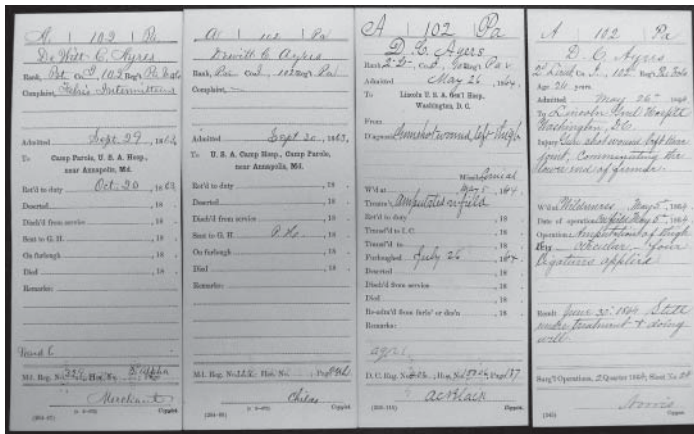 A. | 102 | Pa
De Witt C. Ayres
Rank, Pvt Co. I, 102 Reg't Pa
Complaint, Febris Intermittens
Admitted Sept 29, 1863.
To Camp Parole, U. S. A. Hosp.,
near Annapolis, Md.
Ret'd to duty Oct. 20, 1863
Deserted , 18 .
Disch'd from service , 18 .
Sent to G. H. , 18 .
On furlough , 18 .
Died , 18 .
Remarks:
Ward C
Md. Reg. No. 329 Hos. No.
Merchant
Copyist.
A | 102 | Pa
Dewitt C. Ayres
Rank, Co. I, 102 Reg't Pa
Complaint,
Admitted Sept 20, 1863.
To U. S. A. Camp Hosp., Camp Parole,
near Annapolis, Md.
Ret'd to duty , 18 .
Deserted , 18 .
Disch'd from service , 18 .
Sent to G. H. , 18 .
On furlough , 18 .
Died , 18 .
Remarks:
Md. Reg. No. Hos. No. Page
Childs
Copyist.
A | 102 | Pa
D. C. Ayers
Rank Co. I, 102 Reg't Pa V
Admitted May 26, 1864.
To Lincoln U. S. A. Gen'l Hosp.,
Washington, D. C.
From
Diagnosis Gunshot wound left thigh
W'd at May 5, 1864
Treatm't, Amputated in field
Ret'd to duty , 18
Transf'd to I. C. , 18
Transf'd to , 18
Furloughed July 26, 1864
Deserted , 18
Disch'd from service , 18
Died , 18
Re-adm'd from furlo' or des'n , 18
Remarks:
D. C. Reg. No. Hos. No. Page 137
Copyist.
A | 102 | Pa
D. C. Ayres
2 Lieut Co. I, 102 Reg't Pa
Age 24 years.
Admitted May 26th 1864
To Lincoln Genl Hospitl
Washington, DC.
Injury Gun shot wound left knee
joint, comminuting the
lower end of femur.
W'd at Wilderness, May 5, 1864
Date of operation in field May 5, 1864
Operation Amputation of thigh
circular - four
ligatures applied
Result June 30, 1864 Still
under treatment & doing
well.
Surg'l Operations, 2 Quarter 1864, Sheet No.
Norris
Copyist.